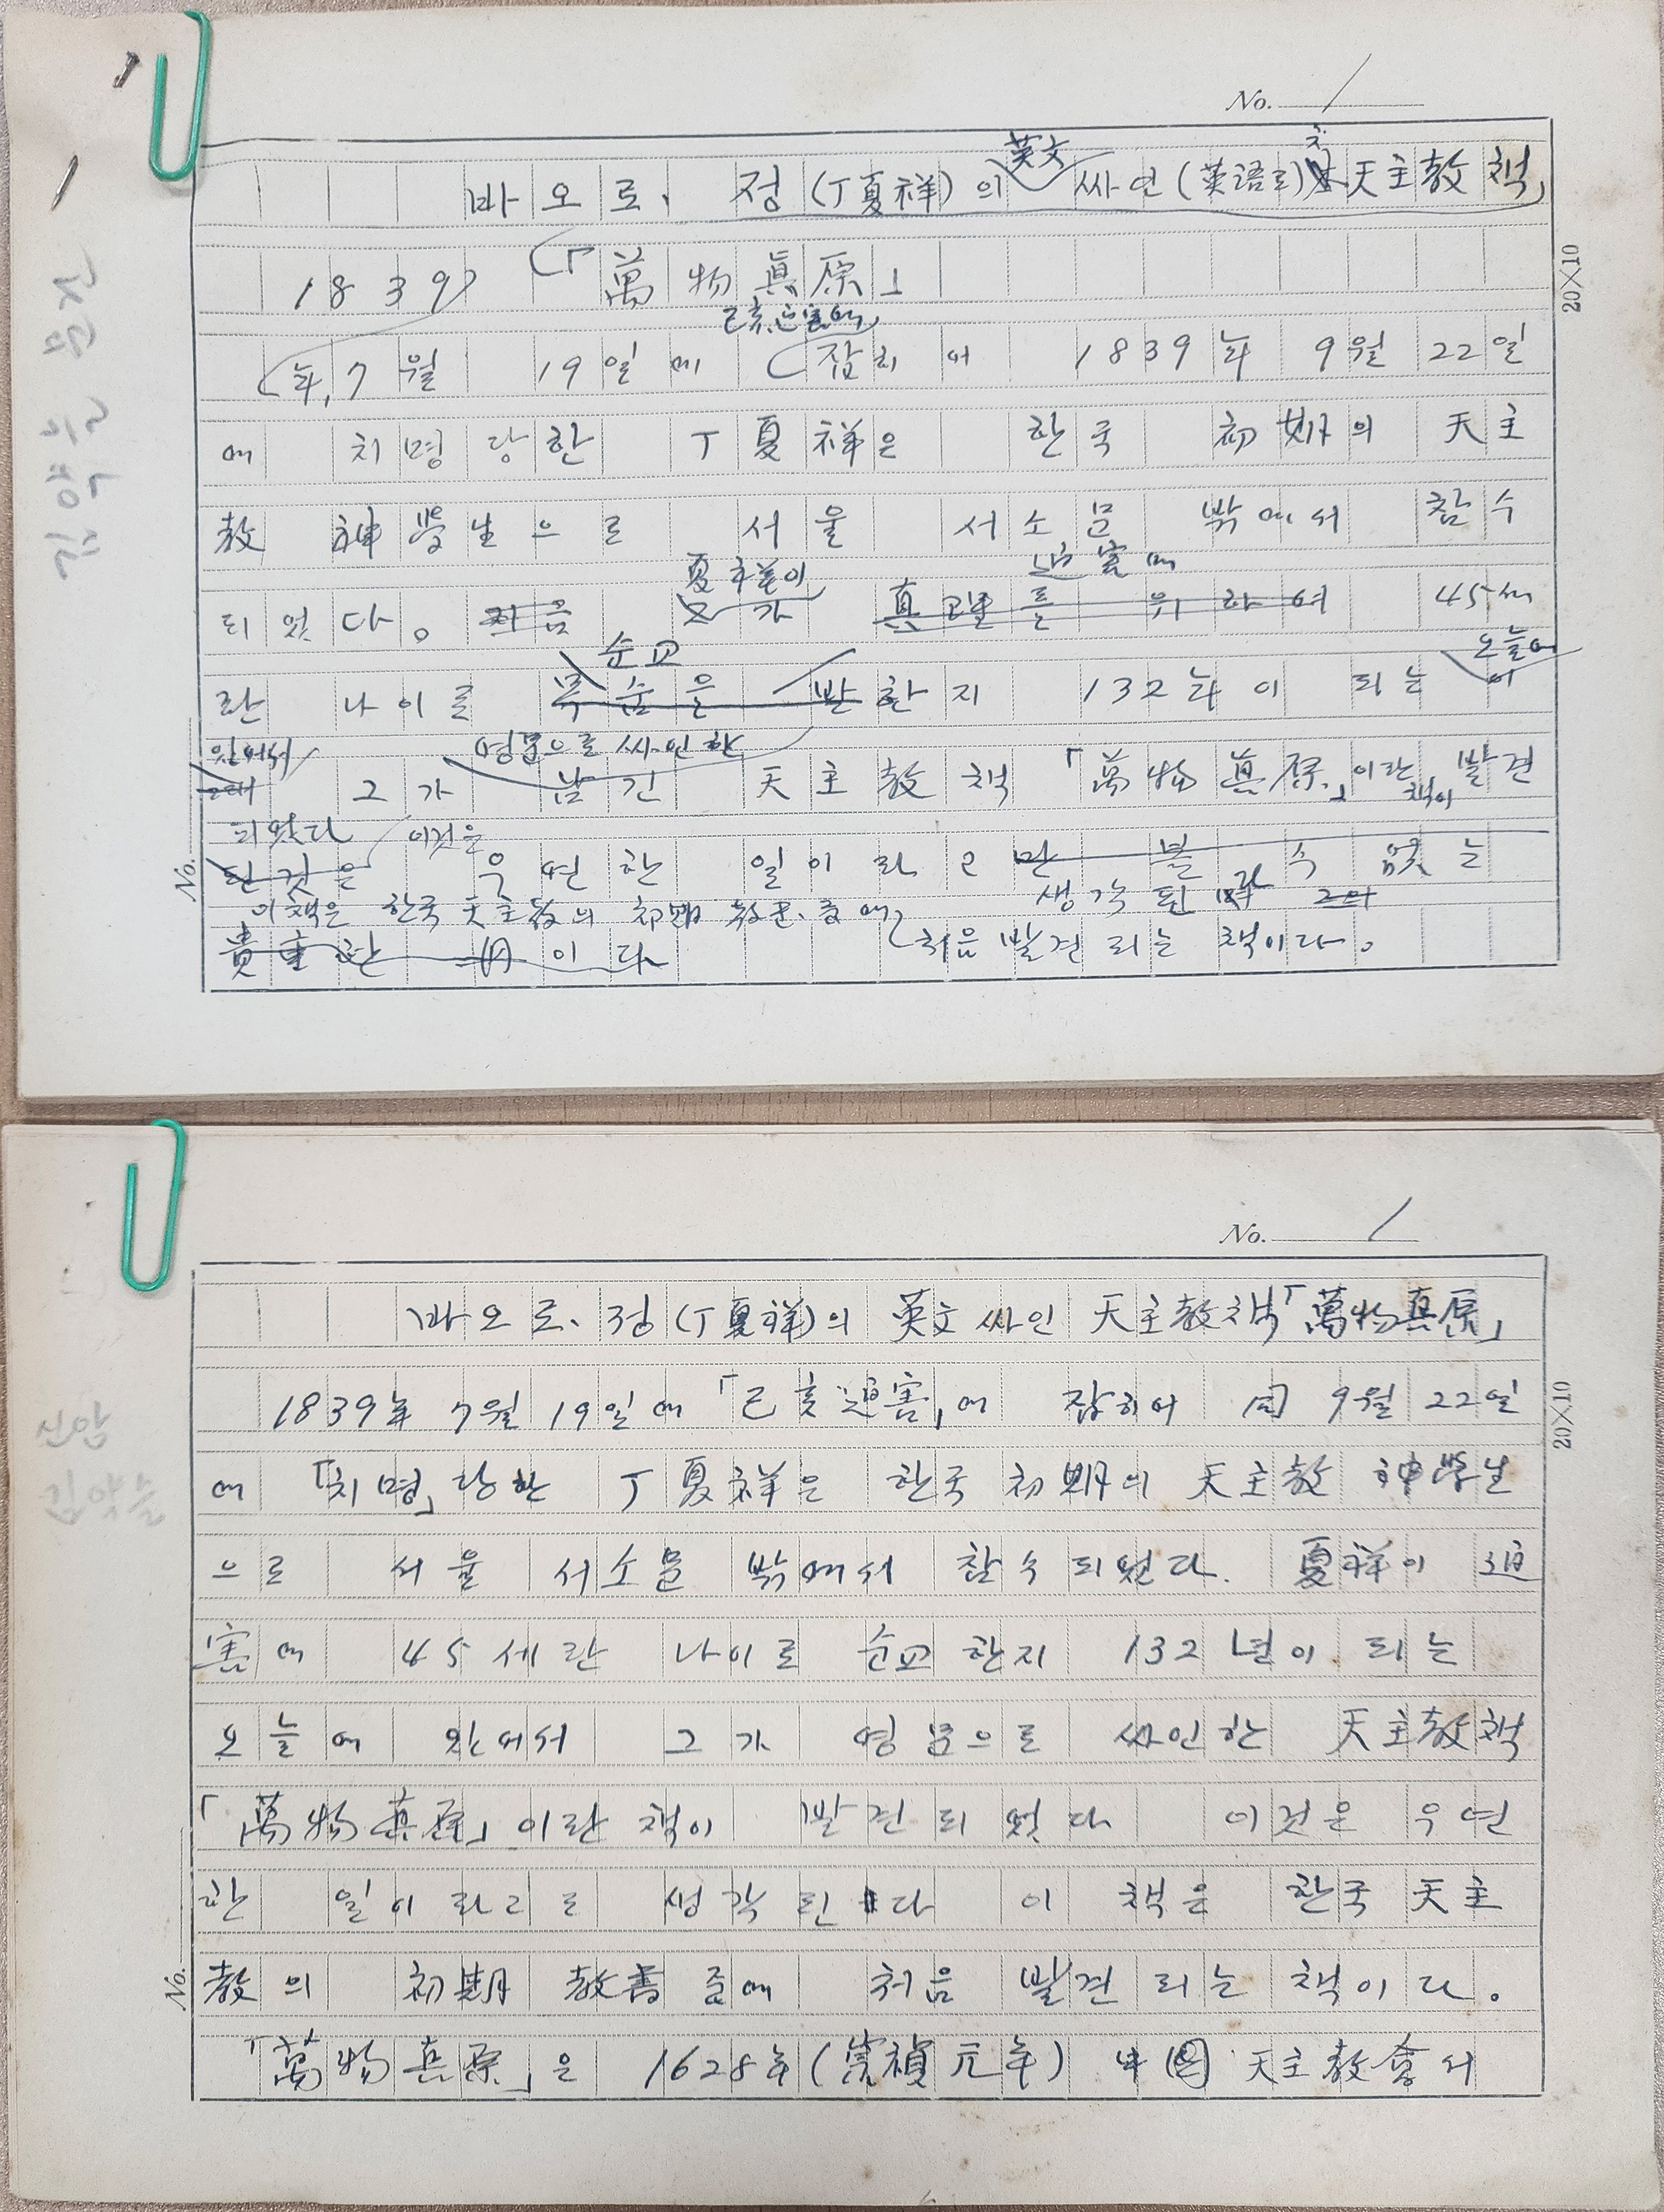 No. 1
英文
바오로、 정(丁夏祥)의 싸인(英語로) 天主教 책
1839 「萬物眞原」
己亥迫害에
年, 7월 19일에 잡히어 1839年 9월 22일
에 치명 당한 丁夏祥은 한국 初期의 天主
教 神學生으로 서울 서소문 밖에서 참수
夏祥이 迫害에
되었다。 지금 그가 真理를 위하여 45세
순교 오늘에
란 나이로 목숨을 반한지 132年이 되는 이
와서 영문으로 싸인한
때 그가 남긴 天主教 책 「萬物真原」이란 책이 발견
되었다 이것은
된 것은 우연한 일이라고만 볼 수 없는
이 책은 한국 天主教의 初期 教書 중에 생각된다
貴重한 日이다 처음 발견되는 책이다。
No.
20×10
No. 1
바오로、정(丁夏祥)의 英文 싸인 天主教 책 「萬物真原」
1839年 7월 19일에 「己亥迫害」에 잡히어 同 9월 22일
에 「치명」당한 丁夏祥은 한국 初期의 天主教 神學生
으로 서울 서소문 밖에서 참수되었다. 夏祥이 迫
害에 45세란 나이로 순교한지 132년이 되는
오늘에 와서 그가 영문으로 싸인한 天主教 책
「萬物真原」이란 책이 발견되었다 이것은 우연
한 일이라고로 생각된다 이 책은 한국 天主
教의 初期 教書 중에 처음 발견되는 책이다。
「萬物真原」은 1628年(崇禎元年) 中国 天主教會서
No.
20×10